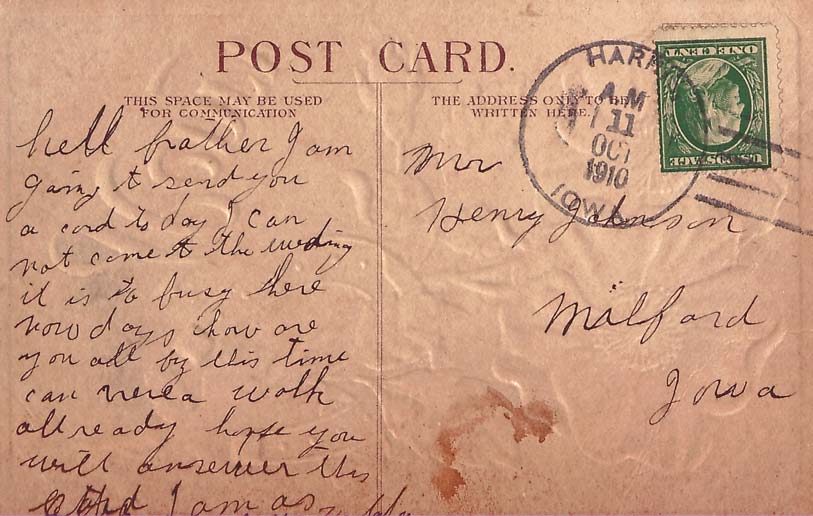 POST CARD.
THIS SPACE MAY BE USED
FOR COMMUNICATION
THE ADDRESS ONLY TO BE
WRITTEN HERE.
HARR
A.M
11
OCT
1910
IOWA
ONE CENT
U.S. POSTAGE
hell brather I am
going t send you
a cord to day I can
not come t the weding
it is to busy here
now days how are
you all by this time
can walk
all ready hope you
will anserwer this
I am as
Mr
Henry Johnson
Milford
Iowa